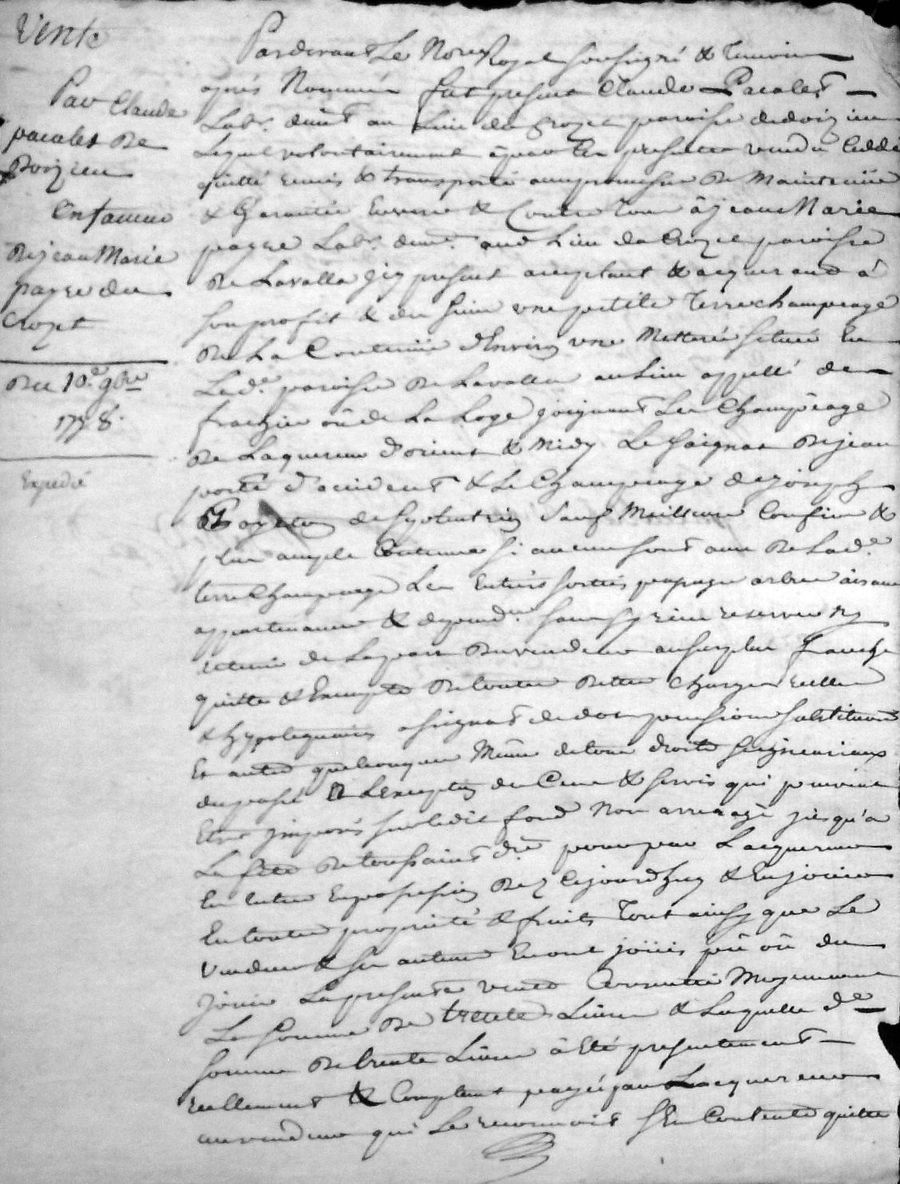 Vente
Par Claude
pacalet De
Doizieu
En faveur
De jean Marie
payre du
Crozet
Du 10.e 9bre
1758.
Expedié
Pardevant Le Nore Royal soussigné & Temoins
après Nommés fut present Claude Pacalet
Labr. demt au Lieu du Crozet paroisse de doizieu
Lequel volontairement à par Ces presentes vendu Ceddé
quitté remis & transporté avec promesse De Maintenüe
& Garantie Envers & Contre tous à jean Marie
payre Labr. demt. aud. Lieu du Crozet paroisse
De Lavalla jcy present acceptant & acquerant à
son profit & des siens une petite Terre champeage
De La Contenüe d'Environ une Metteré située En
Lad.e paroisse De Lavalla au Lieu appellé de
ou de La Loge joignant Le Champéage
De Laquereur d'orient & Midy Le saignas De jean
porte d'occident & Le Champeage de joseph
sauf Meilleurs Confins &
plus ample Contenue si aucuns sont avec De Lad.e
terre Champeage Les Entrées sorties passages arbres aisances
appartenances & dependces. sans sy rien reserver ny
retenir de La part Du vendeur au surplus franche
quitte & Exempte De toutes Dettes charges reelles
& hypotequaires de dot pension substitution
Et autres quelconques Même de tous droits seigneuriaux
du passé à L'exception du Cens & servis qui peuvent
Etre jmposés sur ledit fond Non arreragé jusqu'a
La fete De toussaint d.re pour par Lacquereur
En Entrer En possession Dez Cejourdhuy & En jouir
En toute proprieté & fruits Tout ainsy que Le
vendeur & ses auteurs En ont joüis pû ou dû
joüir La presente vente Moyennant
La somme De trente Livres & Laquelle d.e
somme De trente Livres à Eté presentement
reellement & Comptant payée par Lacquereur
au vendeur qui Le reconnoit s'En Contente quitte